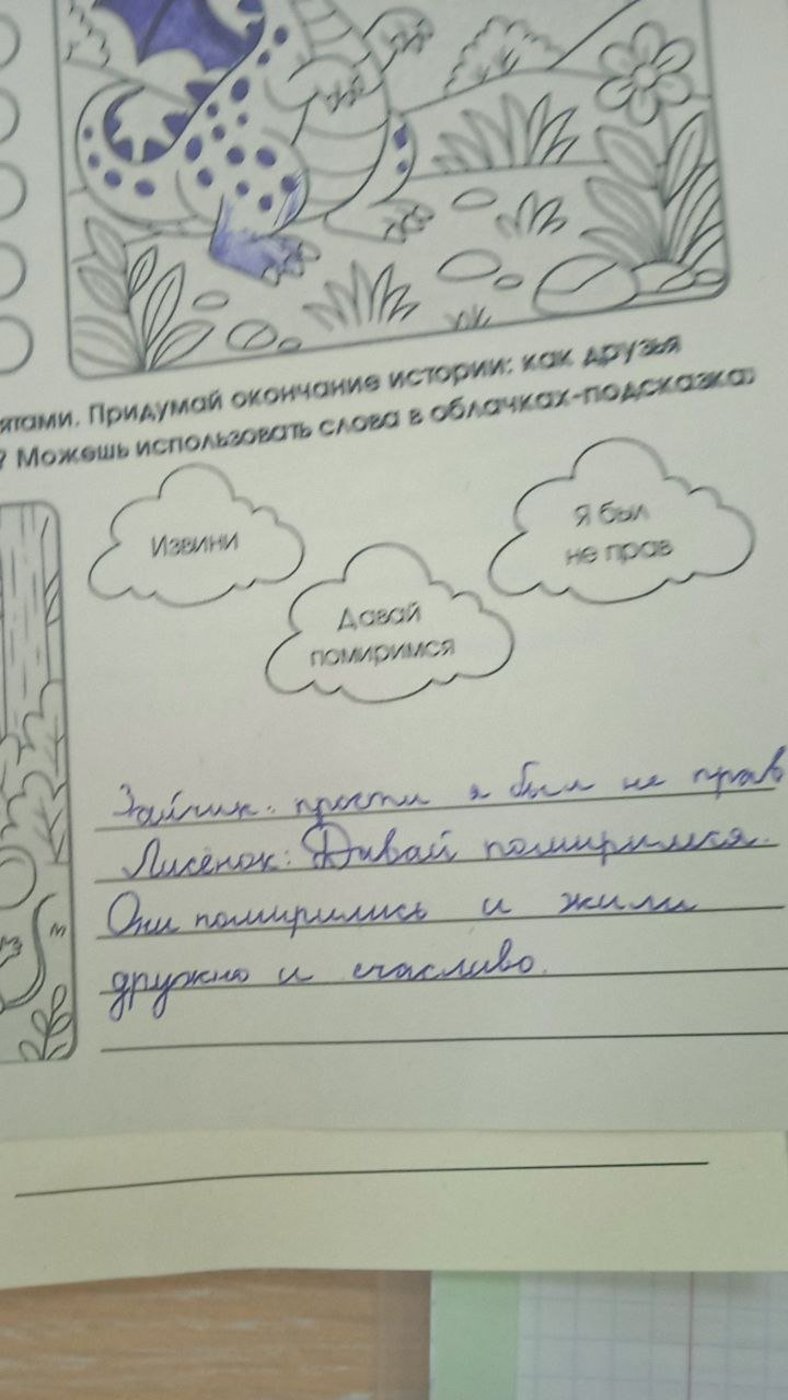 ятами. Придумай окончание истории: как друзья
? Можешь использовать слова в облачках-подсказках
Извини
Я был
не прав
Давай
помиримся
Зайчик: прости я был не прав
Лисёнок: Давай помиримся.
Они помирились и жили
дружно и счасливо.